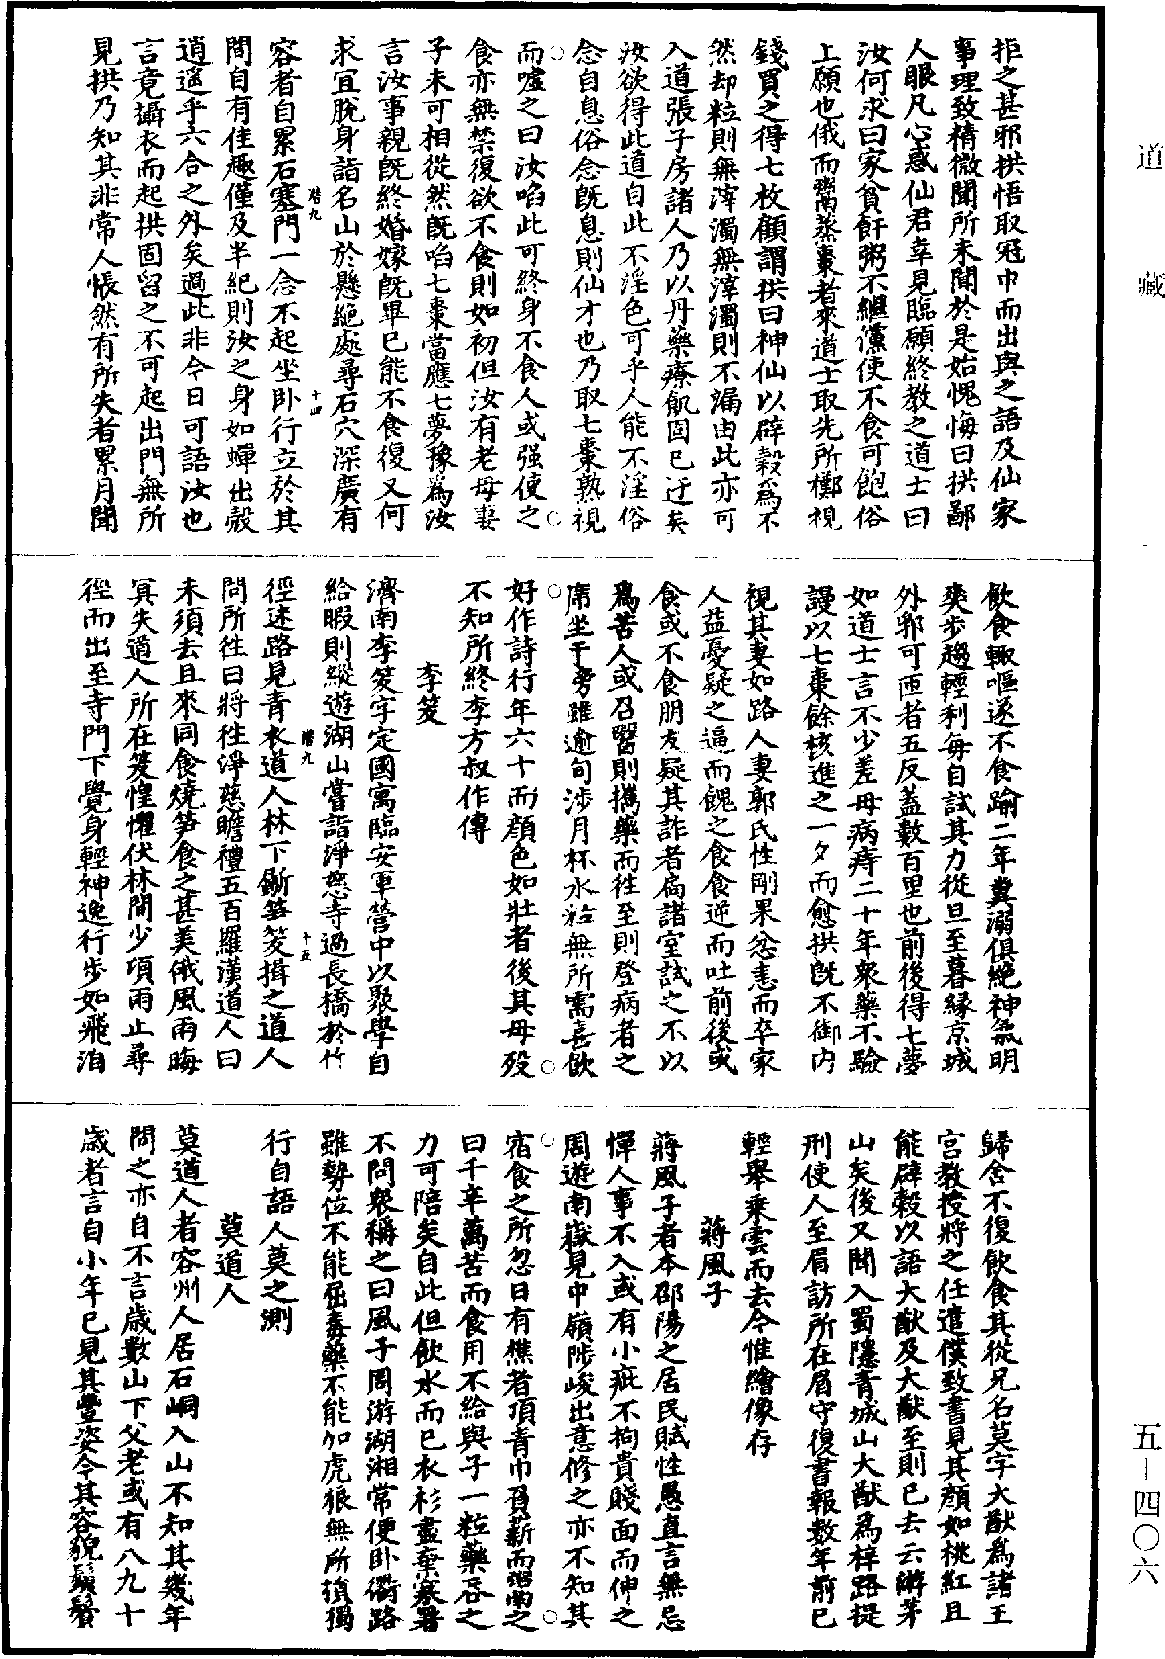 道藏
五—四〇六
拒之甚邪拱悟取冠巾而出與之語及仙家
事理致精微聞所未聞於是始愧悔曰拱鄙
人眼凡心惑仙君幸見臨願終教之道士曰
汝何求曰家貧飦粥不繼儻使不食可飽俗
上願也俄而鬻蒸棗者來道士取先所擲視
錢買之得七枚顧謂拱曰神仙以辟穀爲不
然却粒則無滓濁無滓濁則不漏由此亦可
入道張子房諸人乃以丹藥療飢固已迂矣
汝欲得此道自此不淫色可乎人能不淫俗
念自息俗念既息則仙才也乃取七棗熟視
而噓之曰汝啗此可終身不食人或强使之
食亦無禁復欲不食則如初但汝有老母妻
子未可相從然既啗七棗當應七夢豫爲汝
言汝事親既終婚嫁既畢已能不食復又何
求宜脫身詣名山於懸絕處尋石穴深廣有
容者自累石塞門一念不起坐卧行立於其
階九
十四
間自有佳趣僅及半紀則汝之身如蟬出殼
逍遥乎六合之外矣過此非今日可語汝也
言竟攝衣而起拱固留之不可起出門無所
見拱乃知其非常人悵然有所失者累月聞
飲食輙嘔遂不食踰二年糞溺俱絕神氣明
爽步趨輕利每自試其力從旦至暮緣京城
外郛可匝者五反蓋數百里也前後得七夢
如道士言不少差母病痔二十年衆藥不驗
謾以七棗餘核進之一夕而愈拱既不御内
視其妻如路人妻郭氏性剛果忿恚而卒家
人益憂疑之逼而餽之食食逆而吐前後或
食或不食朋友疑其詐者扃諸室試之不以
爲苦人或召醫則攜藥而往至則登病者之
席坐于旁雖逾旬涉月杯水粒無所需喜飲
好作詩行年六十而顏色如壯者後其母歿
不知所終李方叔作傳
李笈
濟南李笈字定國寓臨安軍營中以聚學自
給暇則縱遊湖山嘗詣淨慈寺過長橋於竹
階九
十五
徑迷路見青衣道人林下斸笋笈揖之道人
問所往曰將往淨慈瞻禮五百羅漢道人曰
未須去且來同食燒笋食之甚美俄風雨晦
冥失道人所在笈惶懼伏林間少頃雨止尋
徑而出至寺門下覺身輕神逸行步如飛洎
歸舍不復飲食其從兄名莫字大猷爲諸王
宫教授將之任遣僕致書見其顏如桃紅且
能辟穀以語大猷及大猷至則已去云游茅
山矣後又聞入蜀隱青城山大猷爲梓路提
刑使人至眉訪所在眉守復書報數年前已
輕舉乘雲而去今惟繪像存
蔣風子
蔣風子者本邵陽之居民賦性愚直言無忌
憚人事不入或有小疵不拘貴賤面而伸之
周遊南嶽見中嶺陟峻出意修之亦不知其
宿食之所忽日有樵者頂青巾負薪而謂之
曰千辛萬苦而食用不給與子一粒藥吞之
力可陪矣自此但飲水而已衣衫盡棄寒暑
不問衆稱之曰風子周游湖湘常便卧衢路
雖勢位不能屈毒藥不能加虎狼無所損獨
行自語人莫之測
莫道人
莫道人者容州人居石峒入山不知其幾年
問之亦自不言歲數山下父老或有八九十
歲者言自小年已見其豐姿今其容貌鬚鬢